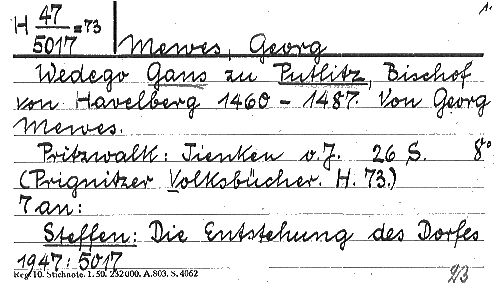 H 47/5017=73 Mewes, Georg
Wedego Gans zu Putlitz, Bischof
von Havelberg 1460 - 1487. Von Georg
Mewes.
Pritzwalk: Tienken o.J. 26 S. 8°
(Prignitzer Volksbücher. H. 73.)
7 an:
Steffen: Die Entstehung des Dorfes
1947: 5017
Reg. 10. Stichnote. 1. 50. 232 000. A. 803. S. 4062